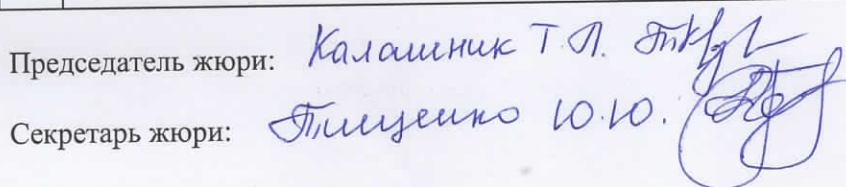 Председатель жюри: Калашник Т.Л.
Секретарь жюри: Тищенко Ю.Ю.